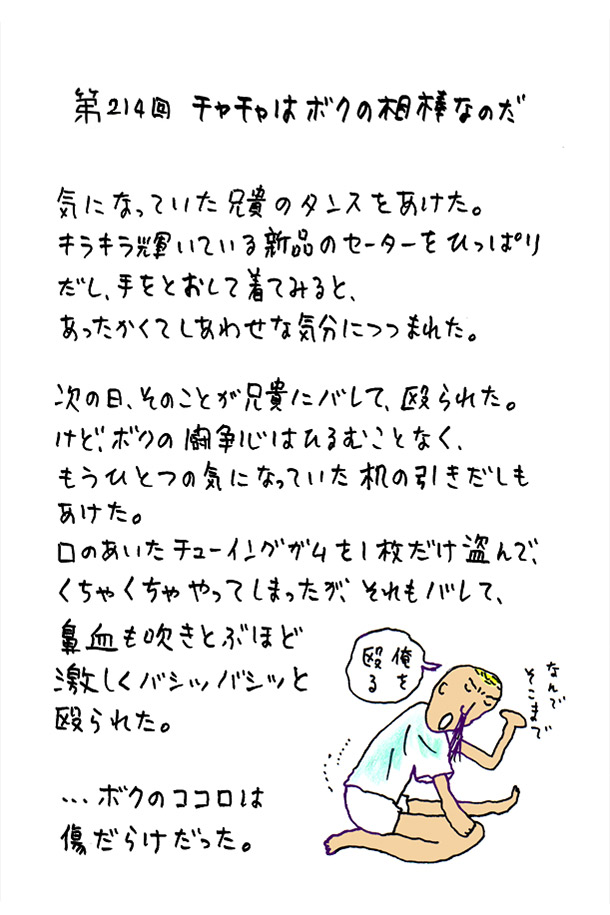 第214回 チャチャはボクの相棒なのだ
気になっていた兄貴のタンスをあけた。
キラキラ輝いている新品のセーターをひっぱり
だし、手をとおして着てみると、
あったかくてしあわせな気分につつまれた。
次の日、そのことが兄貴にバレて、殴られた。
けど、ボクの闘争心はひるむことなく、
もうひとつの気になっていた机の引きだしも
あけた。
口のあいたチューイングガムを1枚だけ盗んで、
くちゃくちゃやってしまったが、それもバレて、
鼻血も吹きとぶほど
激しくバシッバシッと
殴られた。
…ボクのココロは
傷だらけだった。
俺を
殴る
なんで
そこまで